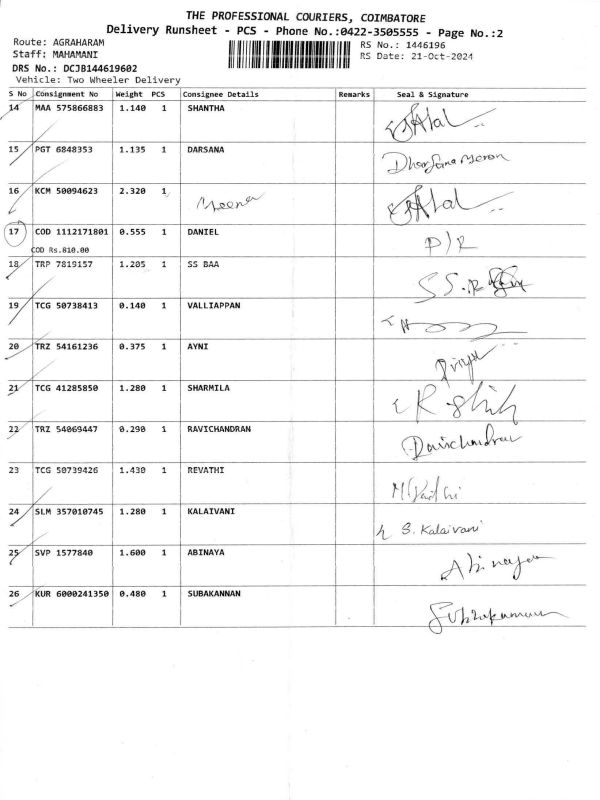 THE PROFESSIONAL COURIERS, COIMBATORE
Delivery Runsheet - PCS - Phone No.:0422-3505555 - Page No.:2
Route: AGRAHARAM
Staff: MAHAMANI
RS No.: 1446196
RS Date: 21-Oct-2024
DRS No.: DCJB144619602
Vehicle: Two Wheeler Delivery
S No Consignment No Weight PCS Consignee Details Remarks Seal & Signature
14 MAA 575866883 1.140 1 SHANTHA
15 PGT 6848353 1.135 1 DARSANA
16 KCM 50094623 2.320 1 Meena
17 COD 1112171801 0.555 1 DANIEL D/R
COD Rs.810.00
18 TRP 7819157 1.205 1 SS BAA
19 TCG 50738413 0.140 1 VALLIAPPAN
20 TRZ 54161236 0.375 1 AYNI
21 TCG 41285850 1.280 1 SHARMILA
22 TRZ 54069447 0.290 1 RAVICHANDRAN
23 TCG 50739426 1.430 1 REVATHI
24 SLM 357010745 1.280 1 KALAIVANI S. Kalaivani
25 SVP 1577840 1.600 1 ABINAYA Abinaya
26 KUR 6000241350 0.480 1 SUBAKANNAN